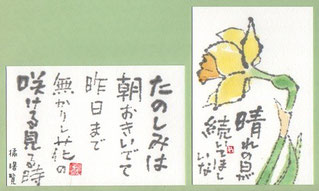 たのしみは
朝おきいでて
昨日まで
無かりし花の
咲ける見る時
橘曙覧
晴れの日が
続いてほしいな